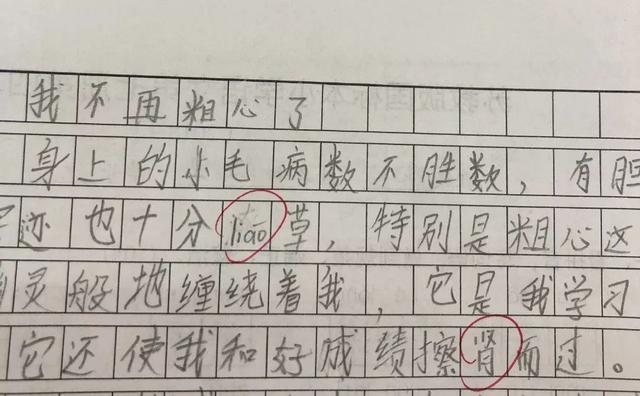 我不再粗心了
身上的小毛病数不胜数，有胆
迹也十分liáo草，特别是粗心这
灵般地缠绕着我，它是我学习
它还使我和好成绩擦肾而过。